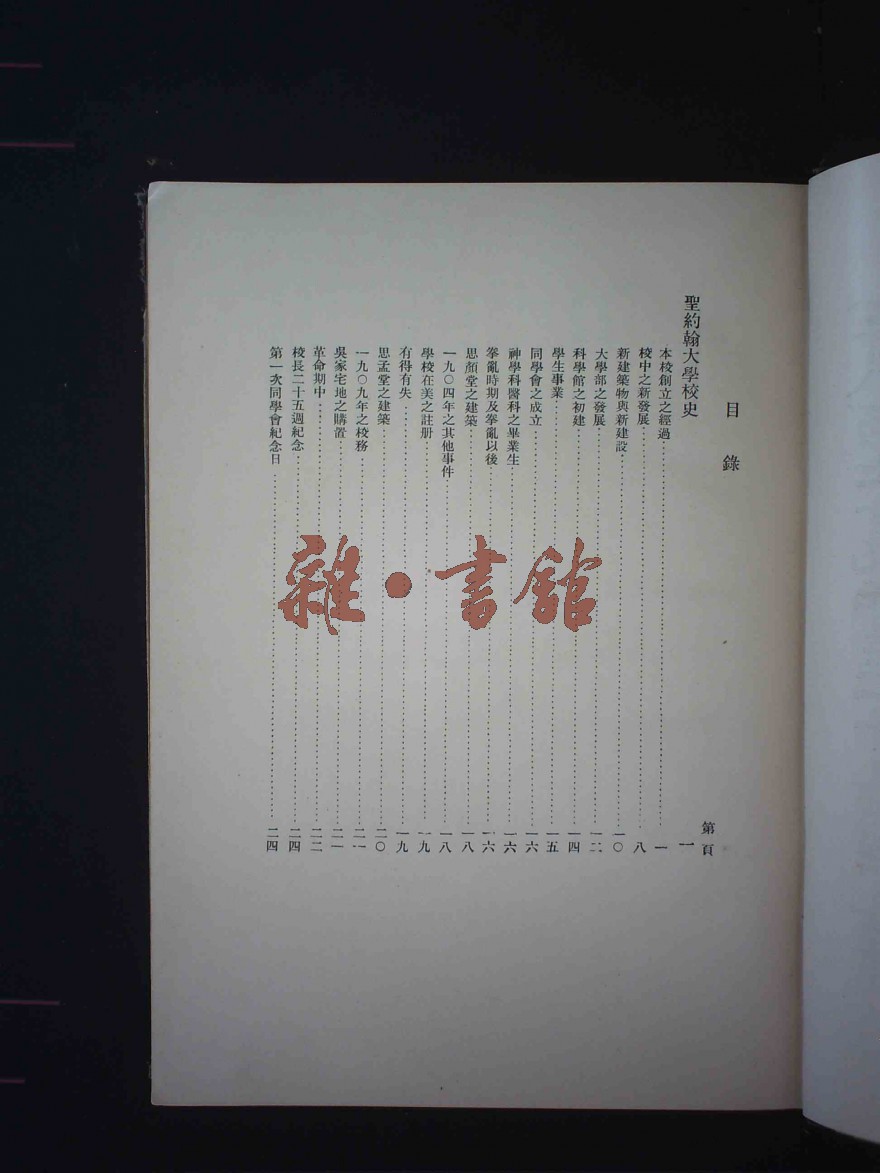 目錄
第頁
聖約翰大學校史 一
本校創立之經過 一
校中之新發展 八
新建築物與新建設 一〇
大學部之發展 一二
科學館之初建 一四
學生事業 一五
同學會之成立 一六
神學科醫科之畢業生 一六
拳亂時期及拳亂以後 一六
思顏堂之建築 一八
一九〇四年之其他事件 一八
學校在美之註册 一九
有得有失 一九
思孟堂之建築 二〇
一九〇九年之校務 二一
吳家宅地之購置 二一
革命期中 二二
校長二十五週紀念 二四
第一次同學會紀念日 二四
雜·書館